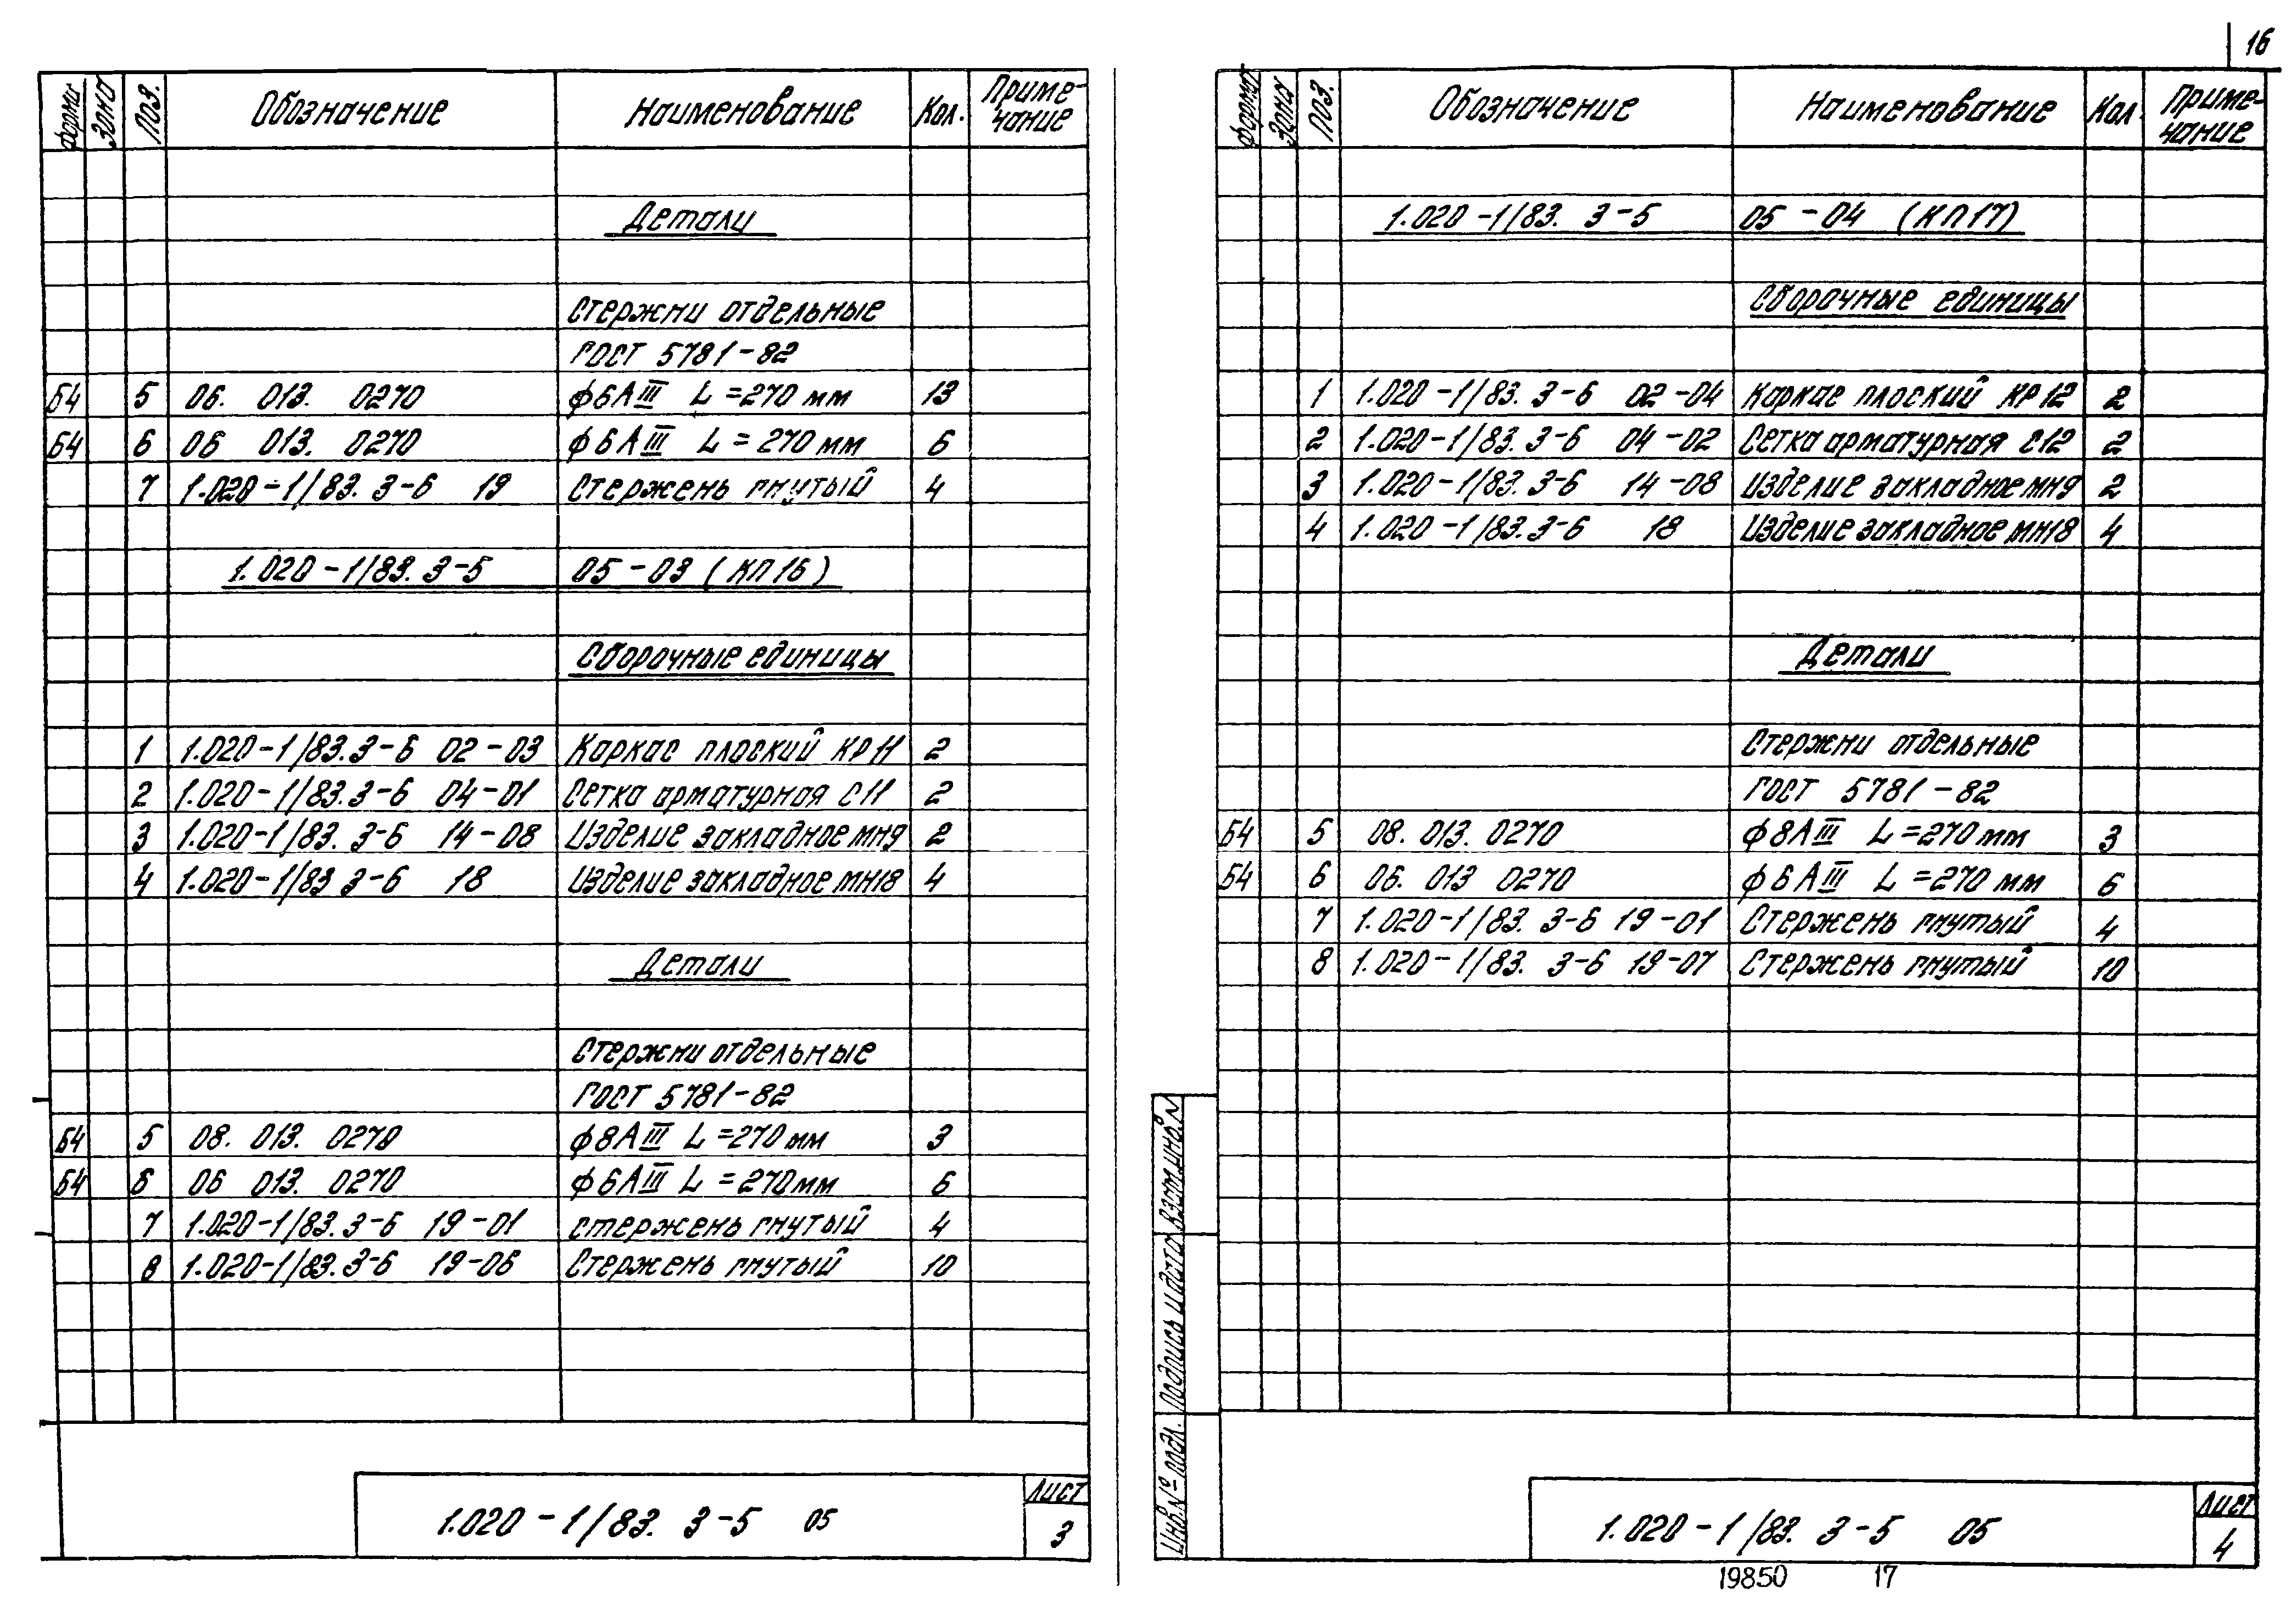 16
Форма Зона Поз. Обозначение Наименование Кол. Приме-
чание
Детали
Стержни отдельные
ГОСТ 5781-82
Б4 5 06. 013. 0270 ϕ6АIII L=270 мм 13
Б4 6 06 013. 0270 ϕ6АIII L=270 мм 6
7 1.020-1/83. 3-6 19 Стержень гнутый 4
1.020-1/83. 3-5 05-03 (КП16)
Сборочные единицы
1 1.020-1/83.3-6 02-03 Каркас плоский КР11 2
2 1.020-1/83.3-6 04-01 Сетка арматурная С11 2
3 1.020-1/83. 3-6 14-08 Изделие закладное МН9 2
4 1.020-1/83 3-6 18 Изделие закладное МН18 4
Детали
Стержни отдельные
ГОСТ 5781-82
Б4 5 08. 013. 0270 ϕ8АIII L=270 мм 3
Б4 6 06 013. 0270 ϕ6АIII L=270мм 6
7 1.020-1/83.3-6 19-01 стержень гнутый 4
8 1.020-1/83.3-6 19-06 Стержень гнутый 10
1.020-1/83. 3-5 05
Лист
3
Форма Зона Поз. Обозначение Наименование Кол. Приме-
чание
1.020-1/83. 3-5 05-04 (КП17)
Сборочные единицы
1 1.020-1/83. 3-6 02-04 Каркас плоский КР12 2
2 1.020-1/83. 3-6 04-02 Сетка арматурная С12 2
3 1.020-1/83. 3-6 14-08 Изделие закладное МН9 2
4 1.020-1/83.3-6 18 Изделие закладное МН18 4
Детали
Стержни отдельные
ГОСТ 5781-82
Б4 5 08. 013. 0270 ϕ8АIII L=270 мм 3
Б4 6 06. 013 0270 ϕ6АIII L=270 мм 6
7 1.020-1/83. 3-6 19-01 Стержень гнутый 4
8 1.020-1/83. 3-6 19-07 Стержень гнутый 10
Взам.инв.№
Подпись и дата
Инв.№ подл.
1.020-1/83. 3-5 05
Лист
4
19850 17